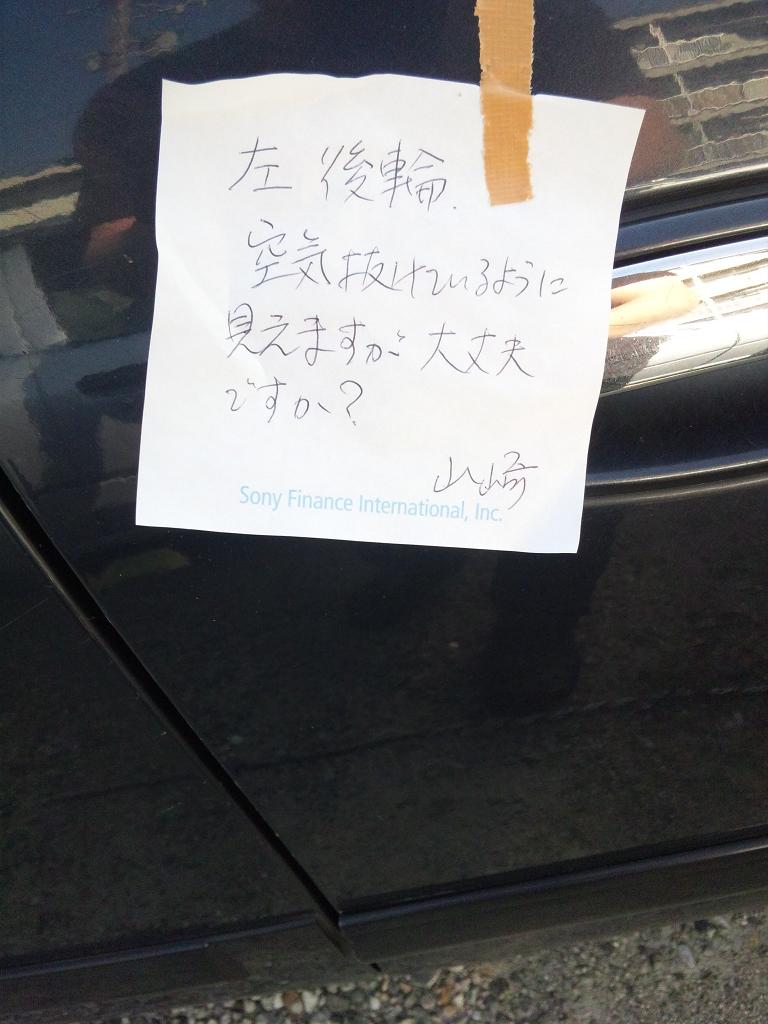 左 後輪.
空気抜けているように
見えますが 大丈夫
ですか?
山崎
Sony Finance International, Inc.